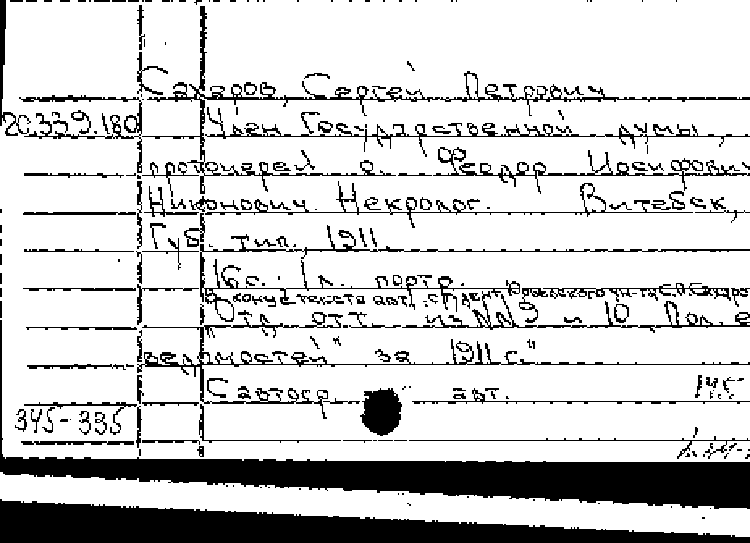 Сахаров, Сергей Петрович
20.339.180 Член Государственной думы,
протоиерей о. Феодор Иосифович
Никонович. Некролог. Витебск,
Губ. тип., 1911.
16 с. 1 л. портр.
В конце текста авт.: студент Юрьевского ун-та С.П. Сахаро
Отд. отт. из №№ 9 и 10 "Пол. е
ведомостей" за 1911 г."
С автогр. авт. 145
345-335